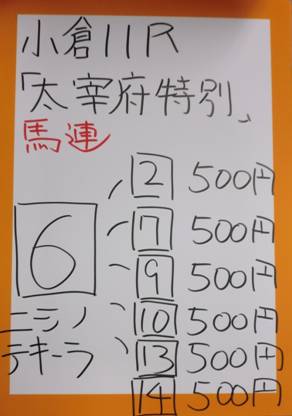 小倉11R
「太宰府特別」
馬連
2 500円
7 500円
6
9 500円
ニシノ
10 500円
テキーラ
13 500円
14 500円